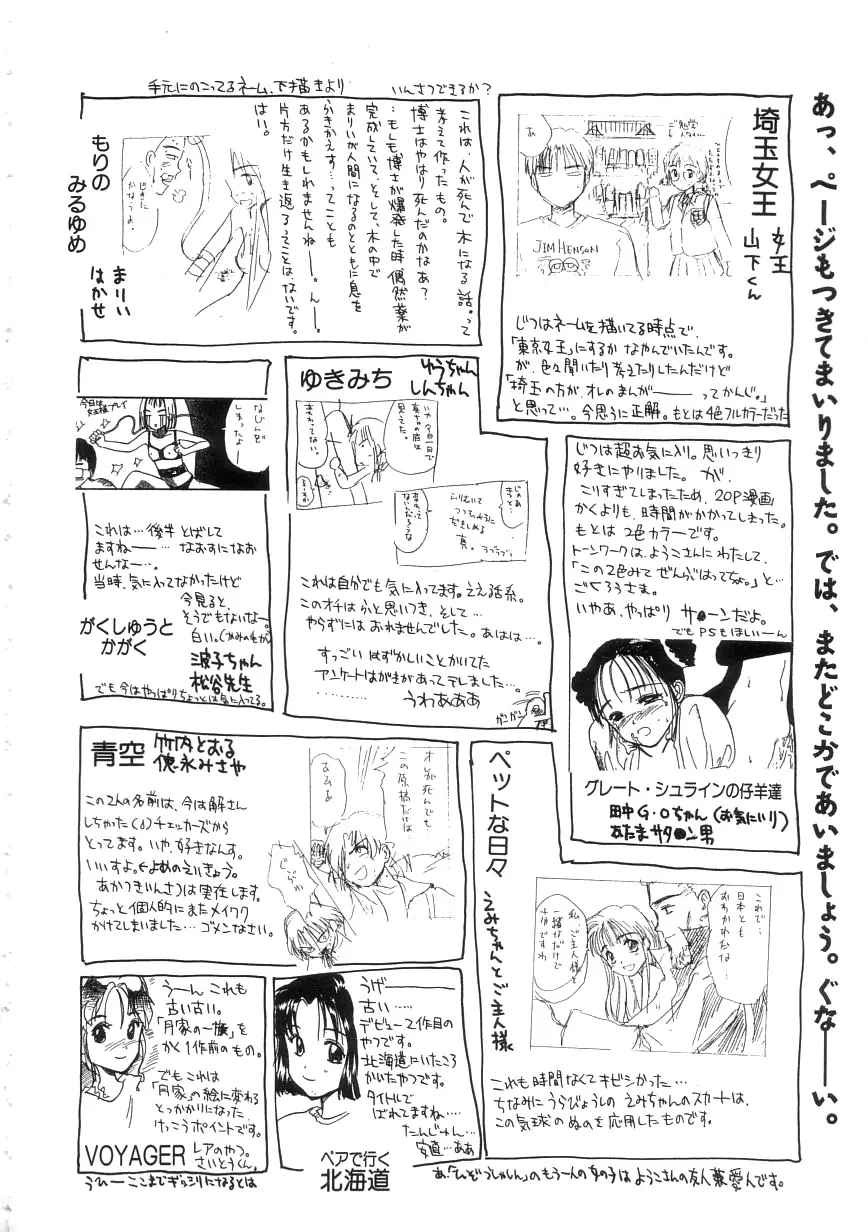 あっ、ページもつきてまいりました。では、またどこかであいましょう。ぐなーーい。
手元にのこってるネーム、下描きより
いんさつできるか?
埼玉女王
女王
山下くん
あ
JIM HENSON
じつはネームを描いてる時点で、
「東京女王」にするか なやんでいたんです。
が、色々聞いたり考えたりしたんだけど
「埼玉の方が、オレのまんが――― ってかんじ。」
と思って…。今思うに正解。もとは4色フルカラーだった
これは、人が死んで木になる話。って
考えて作ったもの。
博士はやはり死んだのかなあ?
…もしも博士が爆発した時 偶然薬が
完成していて、そして、木の中で
まりいが人間になるのとともに息を
ふきかえす…ってことも
あるかもしれませんねー。んー。
片方だけ生き返ろってことは、ないです。
はい。
もりの
みるゆめ
まりい
はかせ
ゆきみち
ゆうちゃん
しんちゃん
じゃあ
きっと
ふりむいて
真。
ラブラブ
これは自分でも気に入ってます。ええ話系。
このオチは ふと思いつき、そして…
やらずには おれませんでした。あはは…。
すっごい はずかしいことかいてた
アンケートはがきがあってテレました…。
…………
うわあああ
ガンガン
今日は
女王様プレイ
なじって
しまったな…
これは… 後半 とばして
ますねー… なおすになお
せんなー…。
当時、気に入ってなかったけど
今見ると、
そうでもないなー。
白い。(かみの毛が)
がくしゅうと
かがく
波子ちゃん
松谷先生
でも今はやっぱりちょっとは気に入ってる。
じつは超お気に入り。思いっきり
好きにやりました。が、
こりすぎてしまったため、20P漫画
かくよりも、時間がかかってしまった。
もとは2色カラーです。
トーンワークは、ようこさんにわたして、
「この2色みて ぜんぶはってちょ。」と…
ごくろうさま。
いやあ、やっぱり サ●ーンだよ。
でもPSもほしいーん
グレート・シュラインの仔羊達
田中G・Oちゃん(お気にいり)
あたまサタ●ン男
青空
竹内とおる
徳永みさや
この2人の名前は、今は解さん
しちゃった(δ)チェッカーズから
とってます。いや、好きなんす。
いいすよ。(←よめのえいきょう。
あかつきいんさつは実在します。
ちょっと個人的にまたメイワク
かけてしまいました… ゴメンなさい。
オレが死んでも
この原稿だけは…
ペットな日々
えみちゃんとご主人様
これで…
日本とも
おわかれだな…
私、ご主人様と
一緒なだけで
これも時間なくてキビシかった…
ちなみに うらびょうしの えみちゃんのスカートは、
この気球のぬのを応用したものです。
うーん これも
古い古い。
「月家の一族」を
かく1作前のもの。
でもこれは
「月家」の絵に変わる
とっかかりになった、
けっこうポイントです。
VOYAGER
レアのやつ。
さいとうくん。
うげ―――
古い……
デビュー2作目の
やつです。
北海道にいたころ
かいたやつです。
タイトルで
ばれてますね…
たんじゅん…
安直…ああ
ペアで行く
北海道
うひー ここまでギッシリになるとは